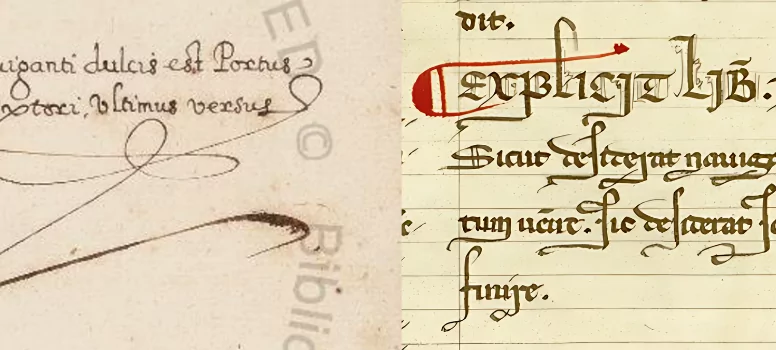 uiganti dulcis est Portus
xtori, Vltimus versus
dit.
Explicit lib̄.
Sicut desiderat nauig
tum uenire. Sic desiderat sc
finire.
ED
©
Biblio